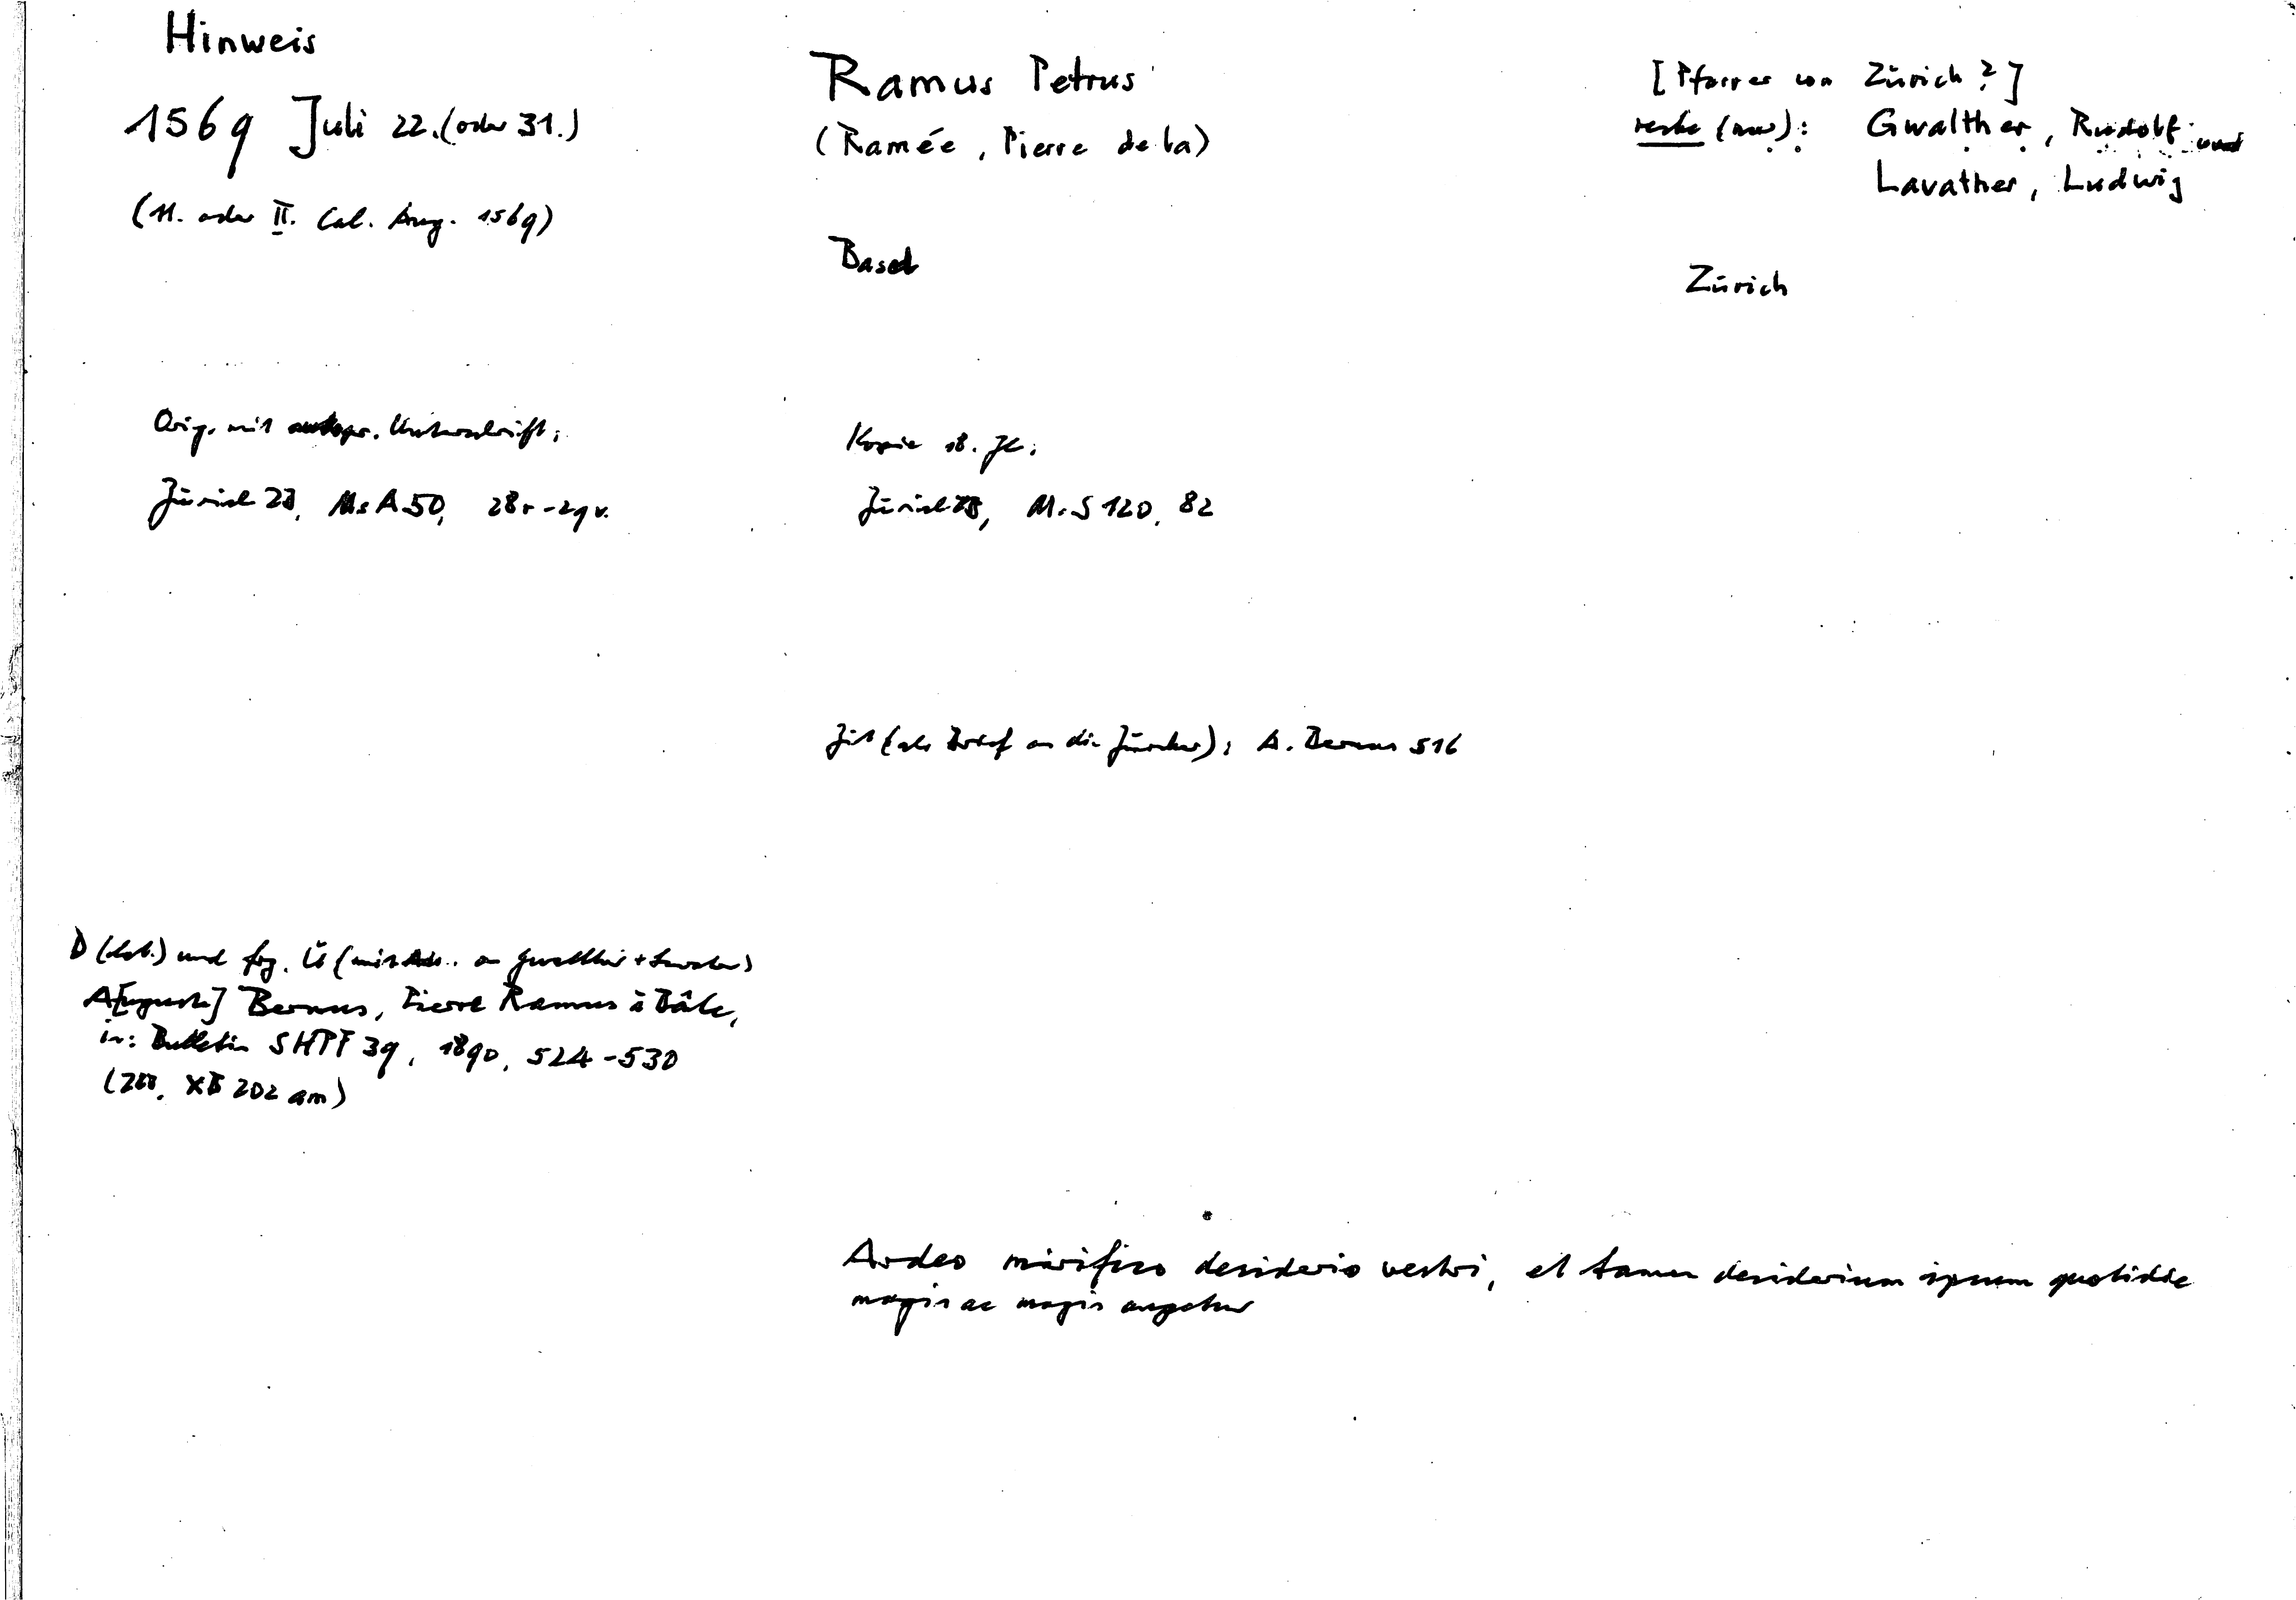 Hinweis
1569 Juli 22. (oder 31.)
(11. oder II. Cal. Aug. 1569)
Ramus Petrus
(Ramée, Pierre de la)
Basel
[Pfarrer von Zürich?]
(nur): Gwalther, Rudolf und
Lavather, Ludwig
Zürich
Orig. mit autogr. Unterschrift:
Zürich ZB, Ms A 50, 28r-29v.
Kopie 18. Jh.:
Zürich ZB, Ms S 120, 82
Zit (als Brief an die Zürcher): A. Bernus 516
D (dat.) und frz. Ü (mit Adr. an Gwalther + Lavater)
A[uguste] Bernus, Pierre Ramus à Bâle,
in: Bulletin SHPF 39, 1890, 524-530
(ZB, XB 202 am)
Ardeo mirifico desiderio vestri, et tamen desiderium ipsum quotidie
magis ac magis augetur